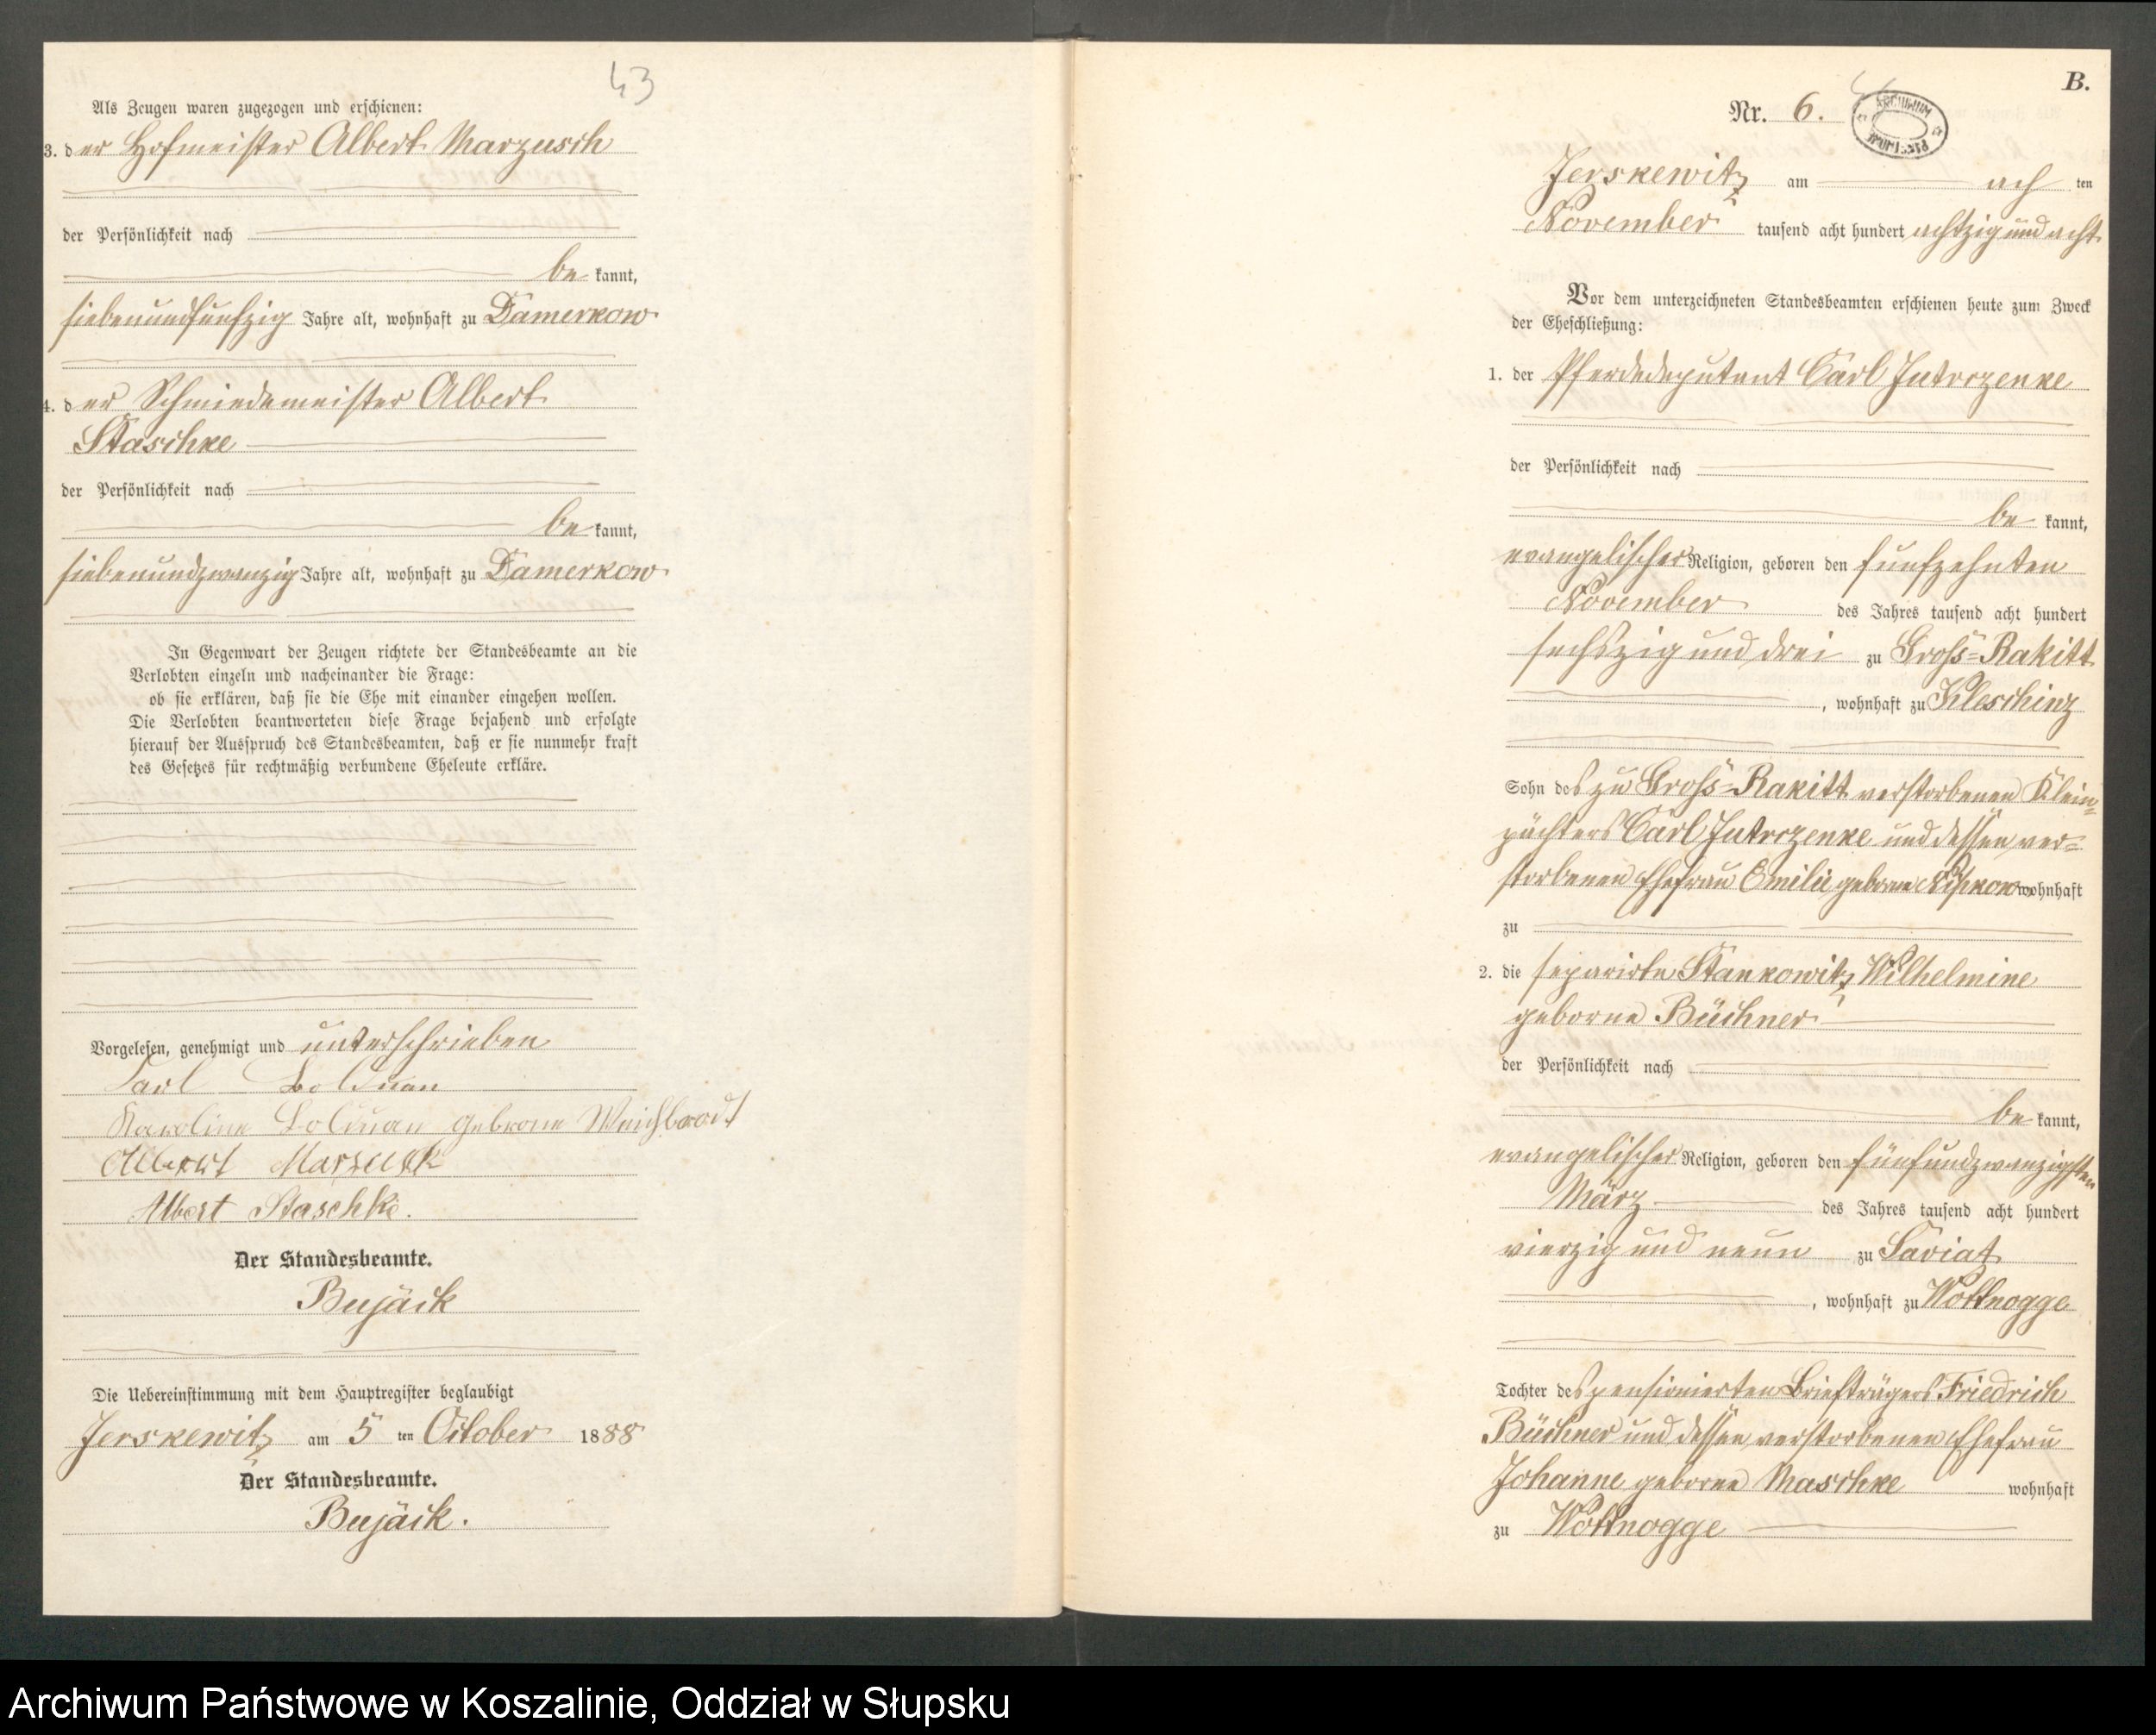 43
Als Zeugen waren zugezogen und erschienen:
3. der Hofmeister Albert Marzusch
der Persönlichkeit nach
be kannt,
siebenundfunfzig Jahre alt, wohnhaft zu Damerkow
4. der Schmiedemeister Albert
Staschke
der Persönlichkeit nach
be kannt,
siebenundzwanzig Jahre alt, wohnhaft zu Damerkow
In Gegenwart der Zeugen richtete der Standesbeamte an die
Verlobten einzeln und nacheinander die Frage:
ob sie erklären, daß sie die Ehe mit einander eingehen wollen.
Die Verlobten beantworteten diese Frage bejahend und erfolgte
hierauf der Ausspruch des Standesbeamten, daß er sie nunmehr kraft
des Gesetzes für rechtmäßig verbundene Eheleute erkläre.
Vorgelesen, genehmigt und unterschrieben
Carl Bolduan
Karoline Bolduan geborne Weichbrodt
Albert
Albert Staschke.
Der Standesbeamte.
Bujäck
Die Uebereinstimmung mit dem Hauptregister beglaubigt
Jerskewitz am 5 ten October 1888
Der Standesbeamte.
Bujäck.
B.
Nr. 6.
ARCHIWUM
Jerskewitz am ach ten
November tausend acht hundert achtzig und acht
Vor dem unterzeichneten Standesbeamten erschienen heute zum Zweck
der Eheschließung:
1. der Pferdedeputant Carl Jutrczenke
der Persönlichkeit nach
be kannt,
evangelischer Religion, geboren den funfzehnten
November des Jahres tausend acht hundert
sechszig und drei zu Groß-Rakitt
, wohnhaft zu Kleschinz
Sohn des zu Groß-Rakitt verstorbenen Klein=
pächters Carl Jutrczenke und dessen ver=
storbenen Ehefrau Emilie geborne Kipkow wohnhaft
zu
2. die separirte Stankowitz, Wilhelmine
geborne Büchner
der Persönlichkeit nach
be kannt,
evangelischer Religion, geboren den fünfundzwanzigsten
März des Jahres tausend acht hundert
vierzig und neun zu Saviat
, wohnhaft zu Wottnogge
Tochter des pensionierten Briefträgers Friedrich
Büchner und dessen verstorbenen Ehefrau
Johanne geborne Maschke wohnhaft
zu Wottnogge
Archiwum Państwowe w Koszalinie, Oddział w Słupsku